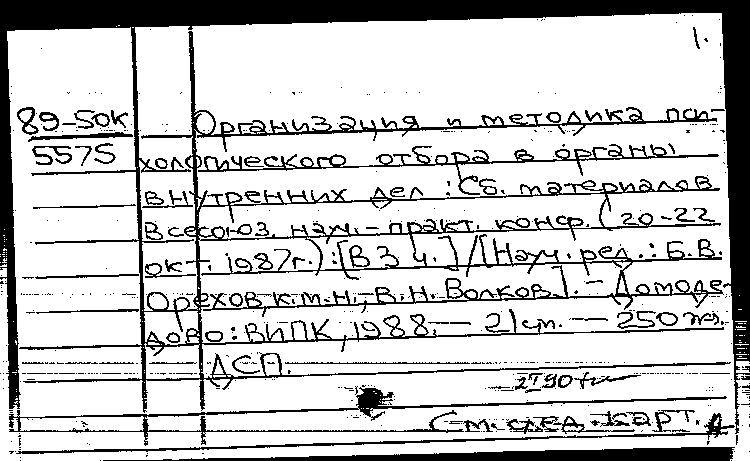 1.
89-50к Организация и методика пси-
5575 хологического отбора в органы
внутренних дел : Сб. материалов
Всесоюз. науч.-практ. конф. (20-22
окт. 1987г.) : [В 3 ч.] / [Науч. ред. : Б.В.
Орехов, к.м.н., В.Н. Волков]. - Домоде-
дово : ВИПК, 1988. — 21 см. — 250 экз.
ДСП.
См. след. карт.